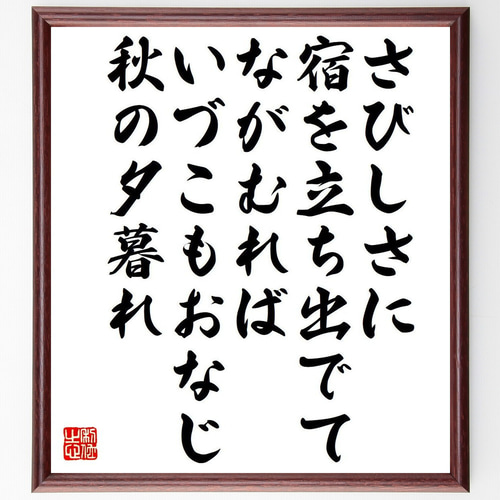 さびしさに
宿を立ち出でて
ながむれば
いづこもおなじ
秋の夕暮れ